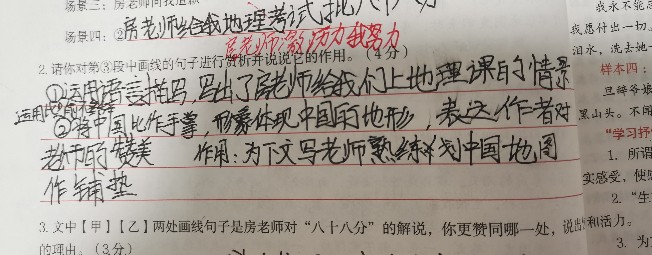 场景三：房老师向我道歉
场景四：②房老师给我地理考试批八十八分
房老师激活力我努力
2.请你对第③段中画线的句子进行赏析并说说它的作用。（4分）
①运用语言描写，写出了房老师给我们上地理课的情景
运用比喻的修辞
②将中国比作手掌，形象体现中国的地形，表达作者对
老师的赞美 作用：为下文写老师熟练比划中国地图
作铺垫
3.文中【甲】【乙】两处画线句子是房老师对“八十八分”的解说，你更赞同哪一处，说出
的理由。（3分）
我永不能
我愿付出一切。
泪水，洗去她
样本四：
旦辞爷娘
黑山头。不闻
“学习抒
1. 所谓
实感受，使
2. “生
和活力。
3. 为